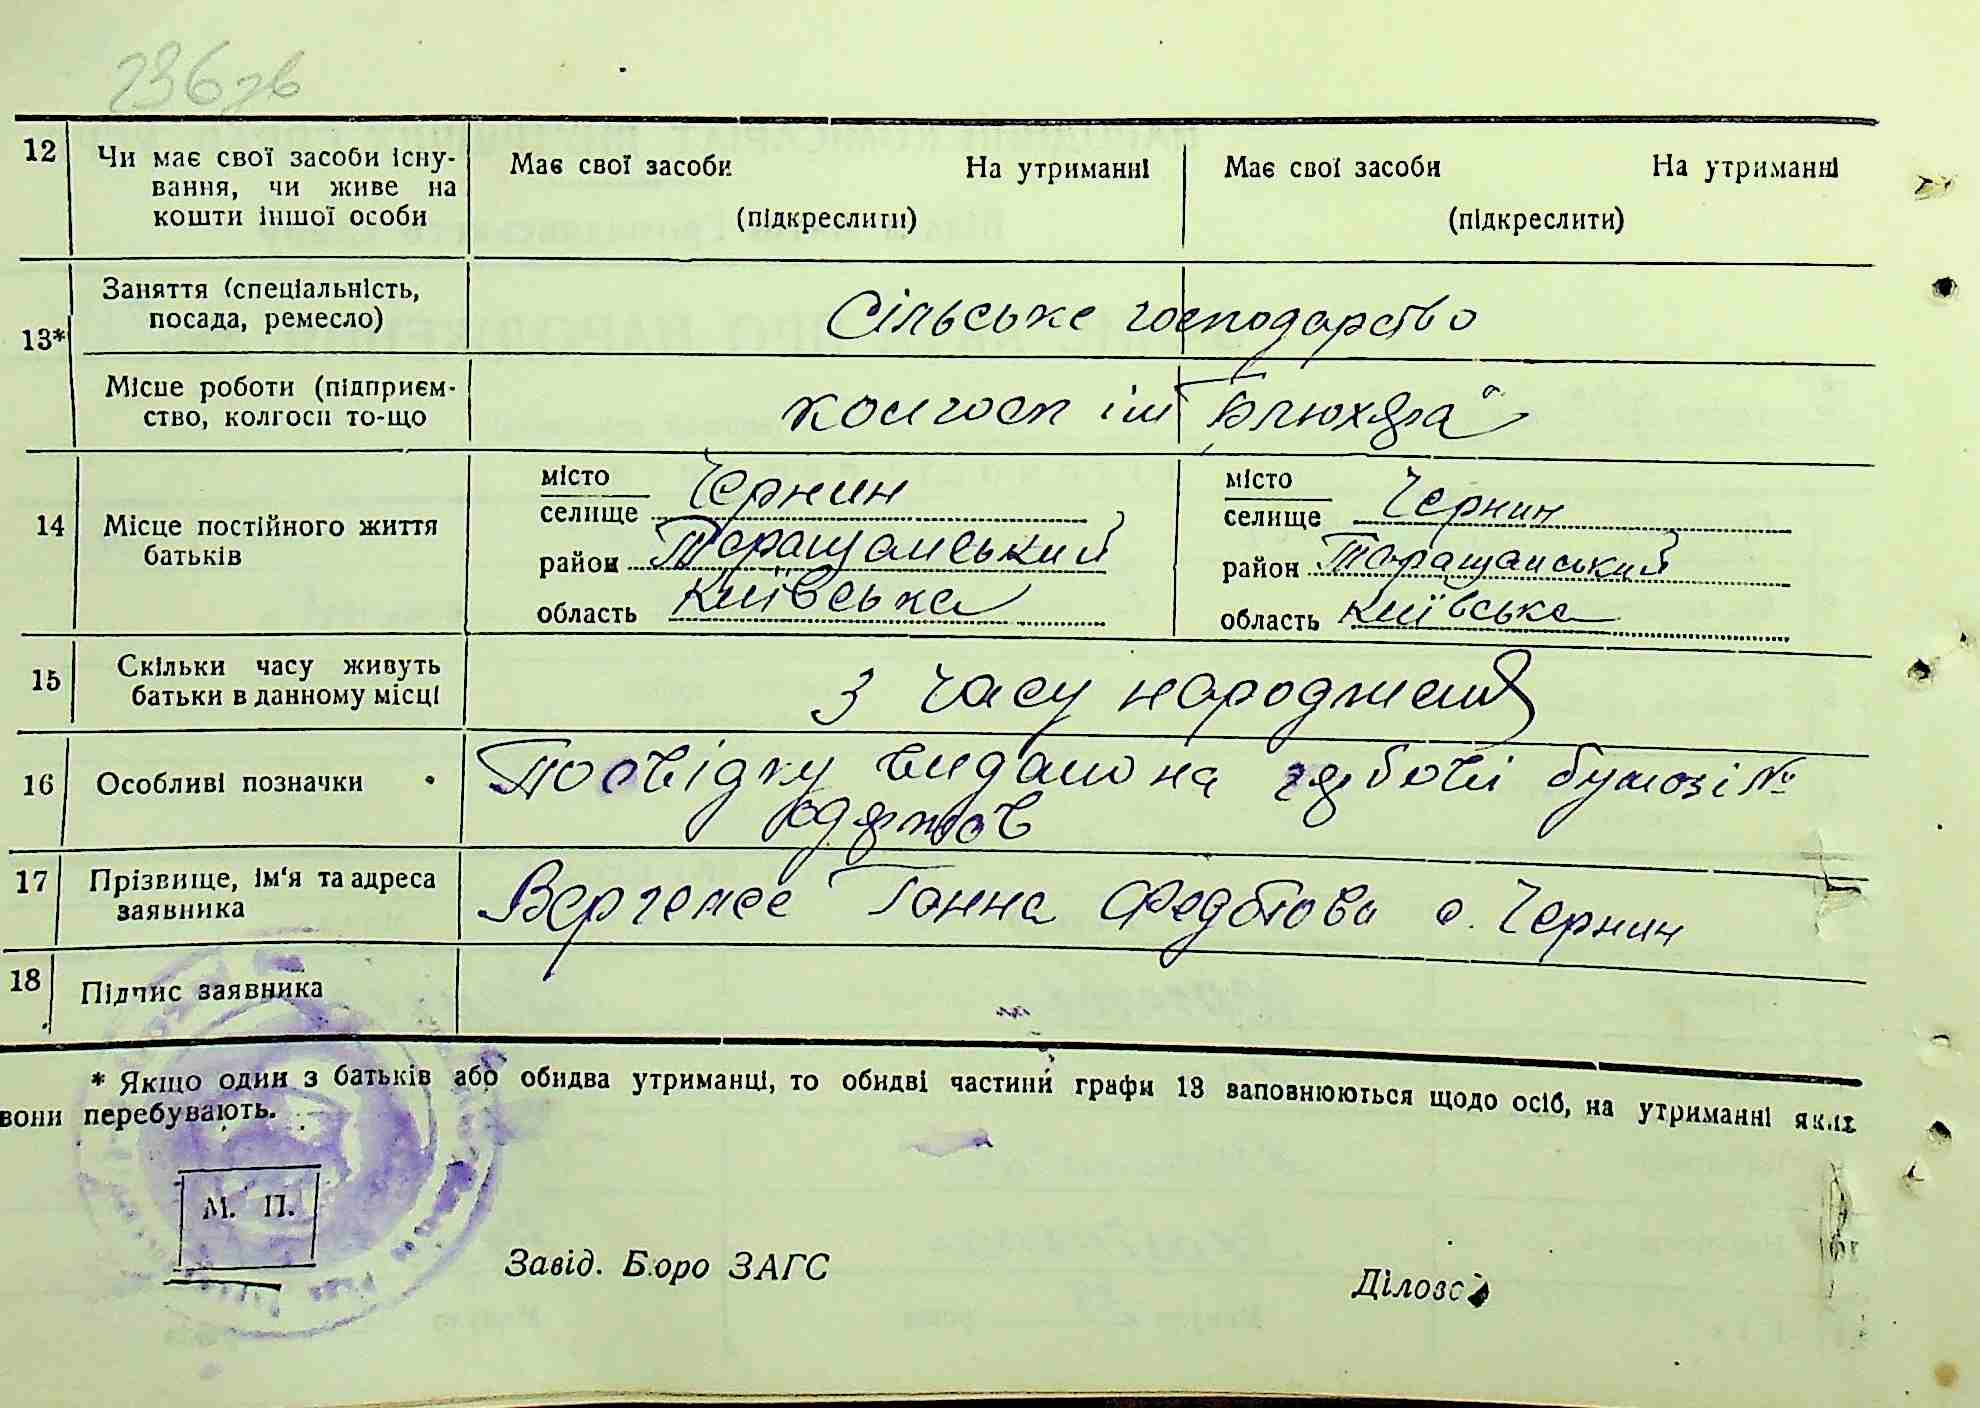 236 зв
12 Чи має свої засоби існу- Має свої засоби На утриманні Має свої засоби На утриманні
вання, чи живе на
кошти іншої особи (підкреслити) (підкреслити)
Заняття (спеціальність,
посада, ремесло) Сільське господарство
13*
Місце роботи (підприєм-
ство, колгосп то-що колгосп ім Блюхера
місто Чернин місто Чернин
селище селище
14 Місце постійного життя
батьків район Таращанський район Таращанський
область Київська область Київська
15 Скільки часу живуть
батьки в данному місці З часу народження
16 Особливі позначки Посвідку видано на гербові бумозі №
17 Прізвище, ім'я та адреса
заявника Ганна Федотова с. Чернин
18 Підпис заявника
* Якщо один з батьків або обидва утриманці, то обидві частини графи 13 заповнюються щодо осіб, на утриманні яких
вони перебувають.
М. П.
Завід. Бюро ЗАГС Діловод